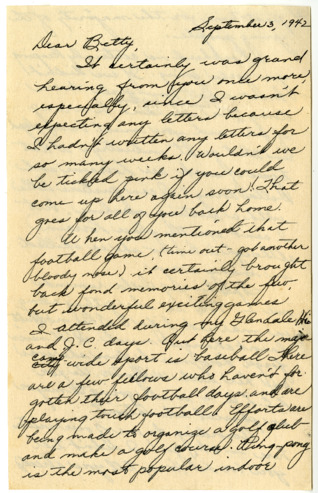 September 3, 1942
Dear Betty,
It certainly was grand
hearing from you once more
especially, since I wasn't
expecting any letters because
I hadn't written any letters for
so many weeks. Wouldn't we
be tickled pink if you could
come up here again soon! That
goes for all of you back home.
When you mentioned that
football game, (time out - got another
bloody nose) it certainly brought
back fond memories of the few
but wonderful exciting games
I attended during my Glendale Hi
and J.C. days. Out here the major
camp wide sport is baseball. There
are a few fellows who haven't for-
gotten their football days and are
playing touch football. Efforts are
being made to organize a golf club
and make a golf course. Ping-pong
is the most popular indoor